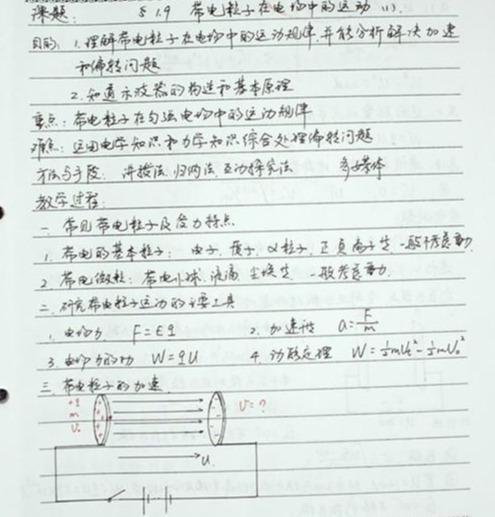 课题: §1.9 带电粒子在电场中的运动 (1).
目的: 1.理解带电粒子在电场中的运动规律,并能分析解决加速
和偏转问题
2.知道示波器的构造和基本原理
重点: 带电粒子在匀强电场中的运动规律
难点: 运用电学知识和力学知识综合处理偏转问题
方法与手段: 讲授法.归纳法.互动探究法 多媒体
教学过程:
一.常见带电粒子及受力特点
1.带电的基本粒子: 电子.质子.α粒子.正负离子等.一般不考虑重力.
2.带电微粒: 带电小球.液滴.尘埃等.一般考虑重力.
二.研究带电粒子运动的主要工具
1.电场力 F=Eq 2.加速度 a=F/m
3.电场力的功 W=qU 4.动能定理 W=½mUₜ²-½mU₀²
三.带电粒子的加速
+q
m
V₀
U=?
U.